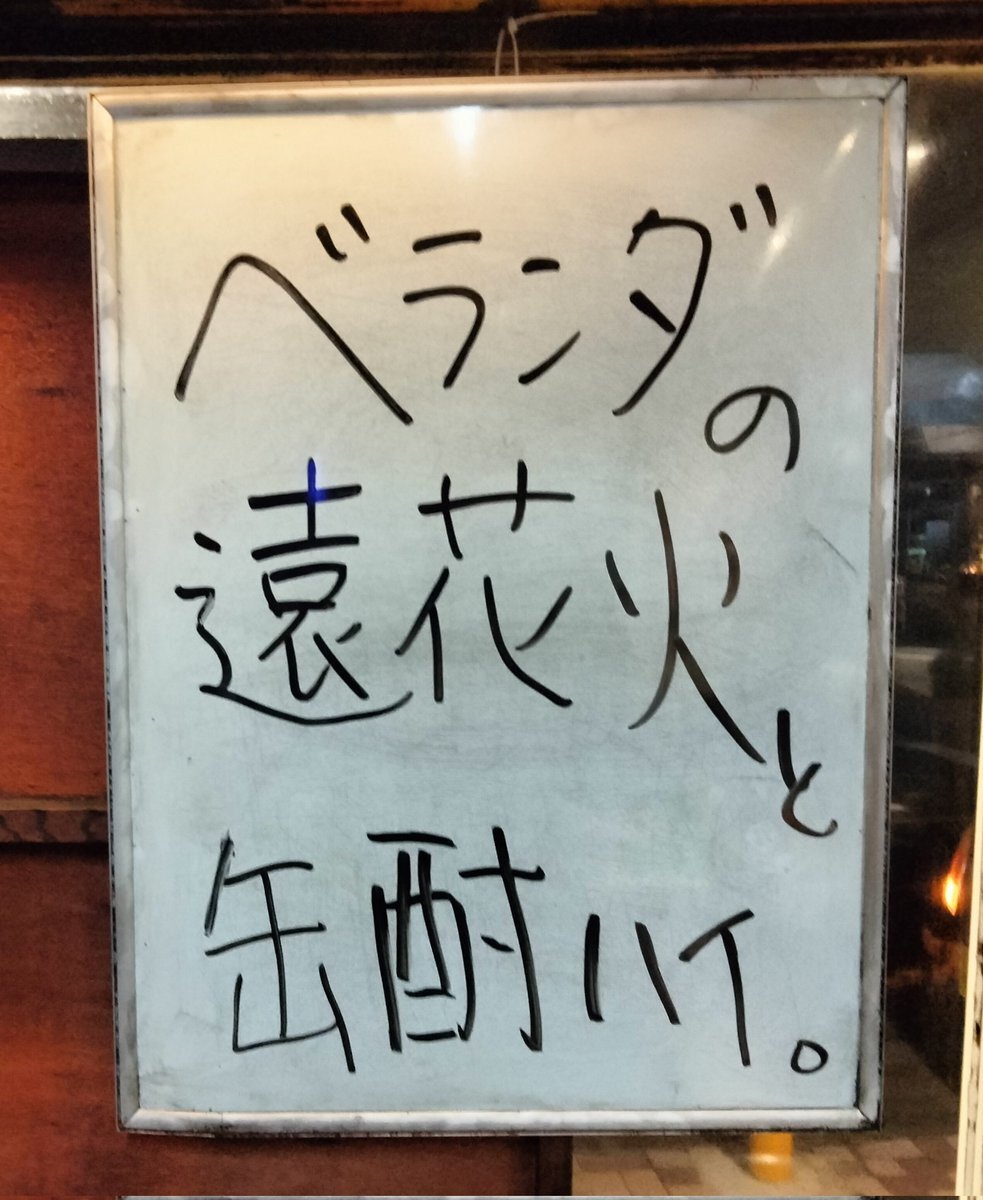 ベランダの
遠花火と
缶酎ハイ。